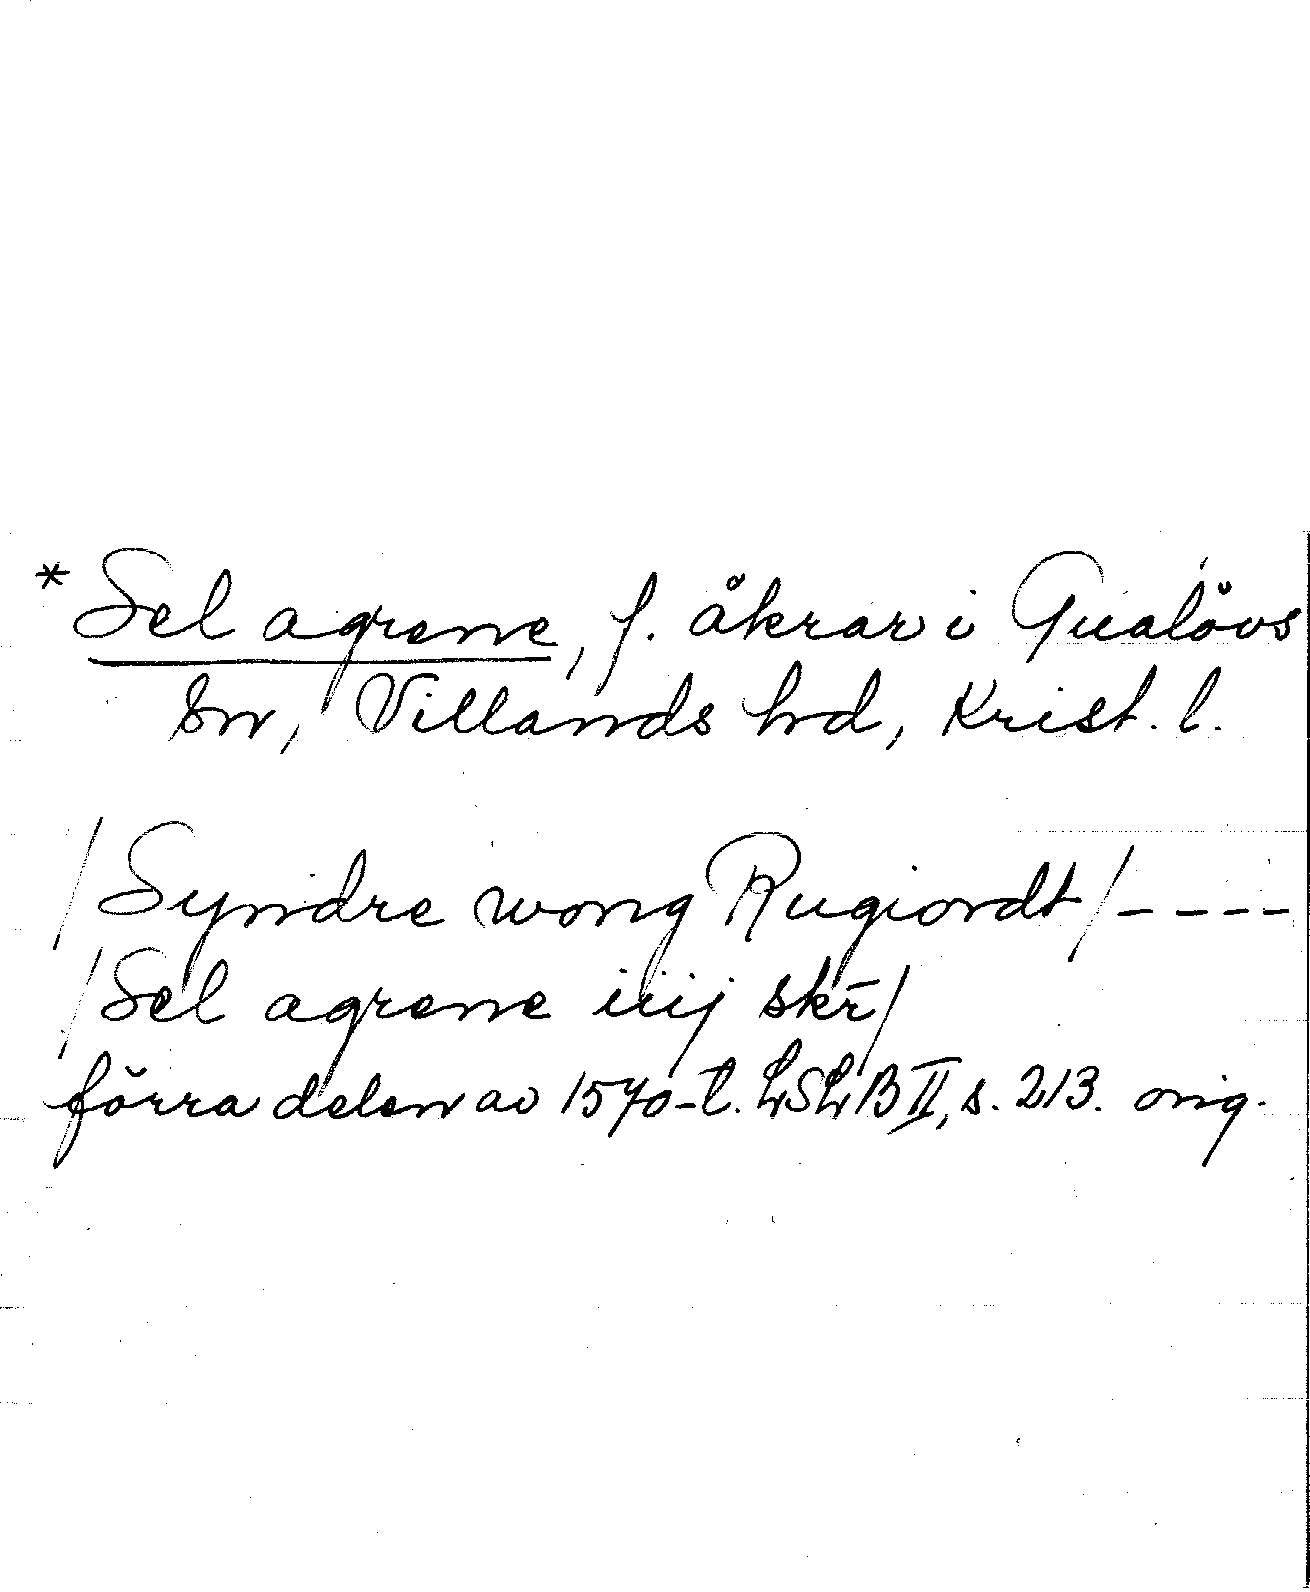 * Sel agrene, f. åkrar i Gualövs
sn, Villands hd, Krist. l.
/Syndre wong Rugiordt/----
/Sel agrene iiij skr̄/
förra delen av 1570-t. LSLB II, s. 213. orig.